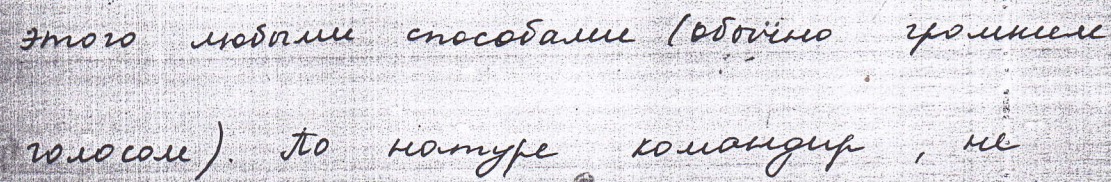 этого любыми способами (обычно громким
голосом). По натуре командир, не